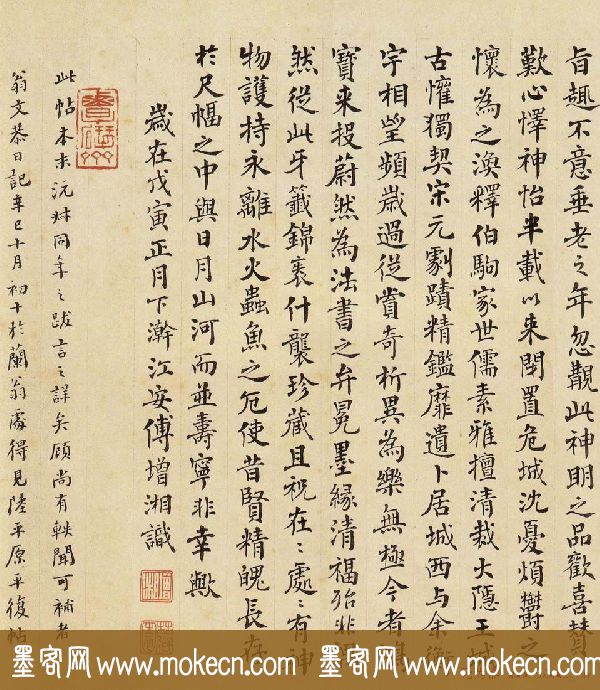 旨趣不意垂老之年忽覩此神明之品歡喜贊
歎心懌神怡半載以來閒置危城沈憂煩鬱之
懷為之渙釋伯駒家世儒素雅擅清裁大隱王城
古懽獨契宋元劇蹟精鑑靡遺卜居城西與余衡
宇相望頻歲過從賞奇析異為樂無極今者
寶來投蔚然為法書之弁冕墨緣清福殆非
然從此牙籤錦裹什襲珍藏且祝在〻處〻有神
物護持永離水火蟲魚之厄使昔賢精魄長存
於尺幅之中與日月山河而並壽寧非幸歟
歲在戊寅正月下澣江安傅增湘識
此帖本末沅叔同年之跋言之詳矣顧尚有軼聞可補者
翁文恭日記辛巳十月初十於蘭翁處得見陸平原平復帖
墨客网 www.mokecn.com 墨客网 www.mokecn.com